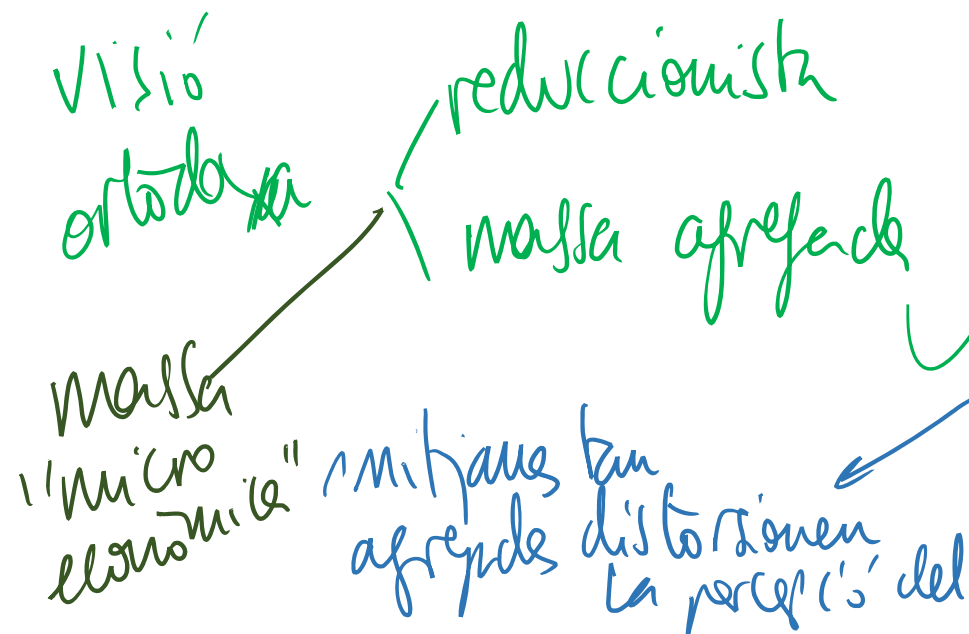 visió
ortodoxa
reduccionista
massa agregada
massa
"micro
econòmica"
mitjanes tan
agregades distorsionen
la percepció del